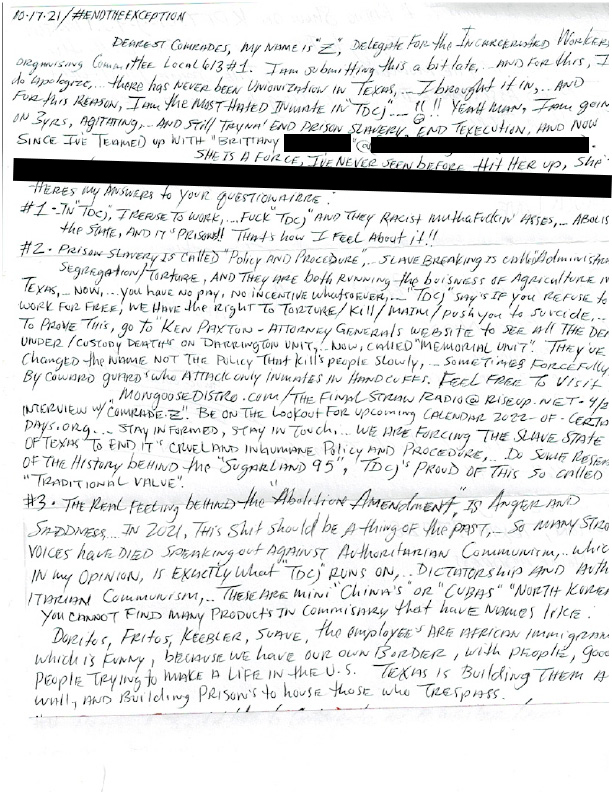 10-17-21/#ENDTHEEXCEPTION
DEAREST COMRADES, MY NAME IS "Z", DELEGATE FOR the INCARCERATED WORKERS
ORGANISING COMMITTEE LOCAL 613 #1. I am SUBMITTING this A bit LATE,... AND FOR this, I
do APOLOGIZE,... there has NEVER been UNIONIZATION IN TEXAS,... I brought it in,... AND
FOR this REASON, I am the MOST-HATED INMATE IN "TDCJ"... !! YEAH MAN, I am goin
ON 3yrs, AGITATING,... AND STILL TRYNA' END PRISON SLAVERY, END TEXECUTION, AND NOW
SINCE I'VE TEAMED UP WITH "BRITTANY
SHE IS A FORCE, I'VE NEVER SEEN before HIT HER UP, SHE'
HERES MY ANSWERS TO YOUR "QUESTIONAIRRE".
#1 - IN "TDCJ", I REFUSE TO WORK,... FUCK "TDCJ" AND THEY RACIST MUthAFUCKIN ASSES,... ABOLIS
the STATE, AND IT'S PRISONS!! THAT'S how I FEEL About it!!
#2 - PRISON SLAVERY IS CALLED "POLICY AND PROCEDURE",... SLAVE BREAKING IS CALLED "ADMINISTRA
SEGREGATION/TORTURE, AND THEY ARE both RUNNING the buISNESS OF AGRICULTURE IN
TEXAS,... NOW,... you HAVE NO PAY, NO INCENTIVE WHATSOEVER,... "TDCJ" SAY'S IF YOU REFUSE TO
WORK FOR FREE, WE HAVE the RIGHT TO TORTURE/KILL/MAIM/PUSH yOU to SUICIDE,...
TO PROVE THIS, go TO "KEN PAXTON - ATTORNEY GENERALS WEBSITE TO SEE All THE DEA
UNDER/CUSTODY DEATHS ON DARRINGTON UNIT,... NOW, CALLED "MEMORIAL UNIT". THEY'VE
CHANGED the NAME NOT THE POLICY THAT KILL'S PEOPLE SLOWLY,... SOMETIMES FORCEFULLY
BY COWARD GUARD'S WHO ATTACK ONLY INMATES IN HANDCUFFS. FEEL FREE TO VISIT
MONGOOSEDISTRO.COM/THE FINAL STRAW RADIO@RISEUP.NET - 4/2
INTERVIEW W/"COMRADE-Z". BE ON THE LOOKOUT FOR UPCOMING CALENDAR 2022-OF-CERTAI
DAYS.ORG,... STAY INFORMED, STAY IN TOUCH,... WE ARE FORCING THE SLAVE STATE
OF TEXAS TO END IT'S CRUEL AND INHUMANE POLICY AND PROCEDURE,... DO SOME RESEA
OF THE HISTORY BEHIND the "SUGARLAND 95", "TDCJ"'S PROUD OF THIS SO CALLED
"TRADITIONAL VALUE".
#3 - THE REAL FEELING bEHIND the "Abolition AMENDMENT", IS ANGER AND
SADDNESS... IN 2021, THIS Shit should BE A thing OF the PAST,... SO MANY STRO
VOICES HAVE DIED SPEAKING OUT AGAINST AUTHORITARIAN COMMUNISM,... WHIC
IN my OPINION, IS EXACTLY WHAT "TDCJ" RUNS ON,... DICTATORSHIP AND AUTH
ITARIAN COMMUNISM,... THESE ARE MINI "CHINA'S" OR "CUBAS" "NORTH KOREA
YOU CANNOT FIND MANY PRODUCTS IN COMMISARY that HAVE NAMES LIKE:
DORITOS, FRITOS, KEEBLER, SUAVE, the EMPLOYEE'S ARE AFRICAN IMMIGRAN
WHICH IS FUNNY, BECAUSE WE HAVE OUR OWN BORDER, WITH PEOPLE, GOOD
PEOPLE TRYING to MAKE A LIFE IN the U.S. TEXAS IS BUILDING THEM A
WALL, AND BUILDING PRISON'S to HOUSE THOSE WHO TRESPASS.